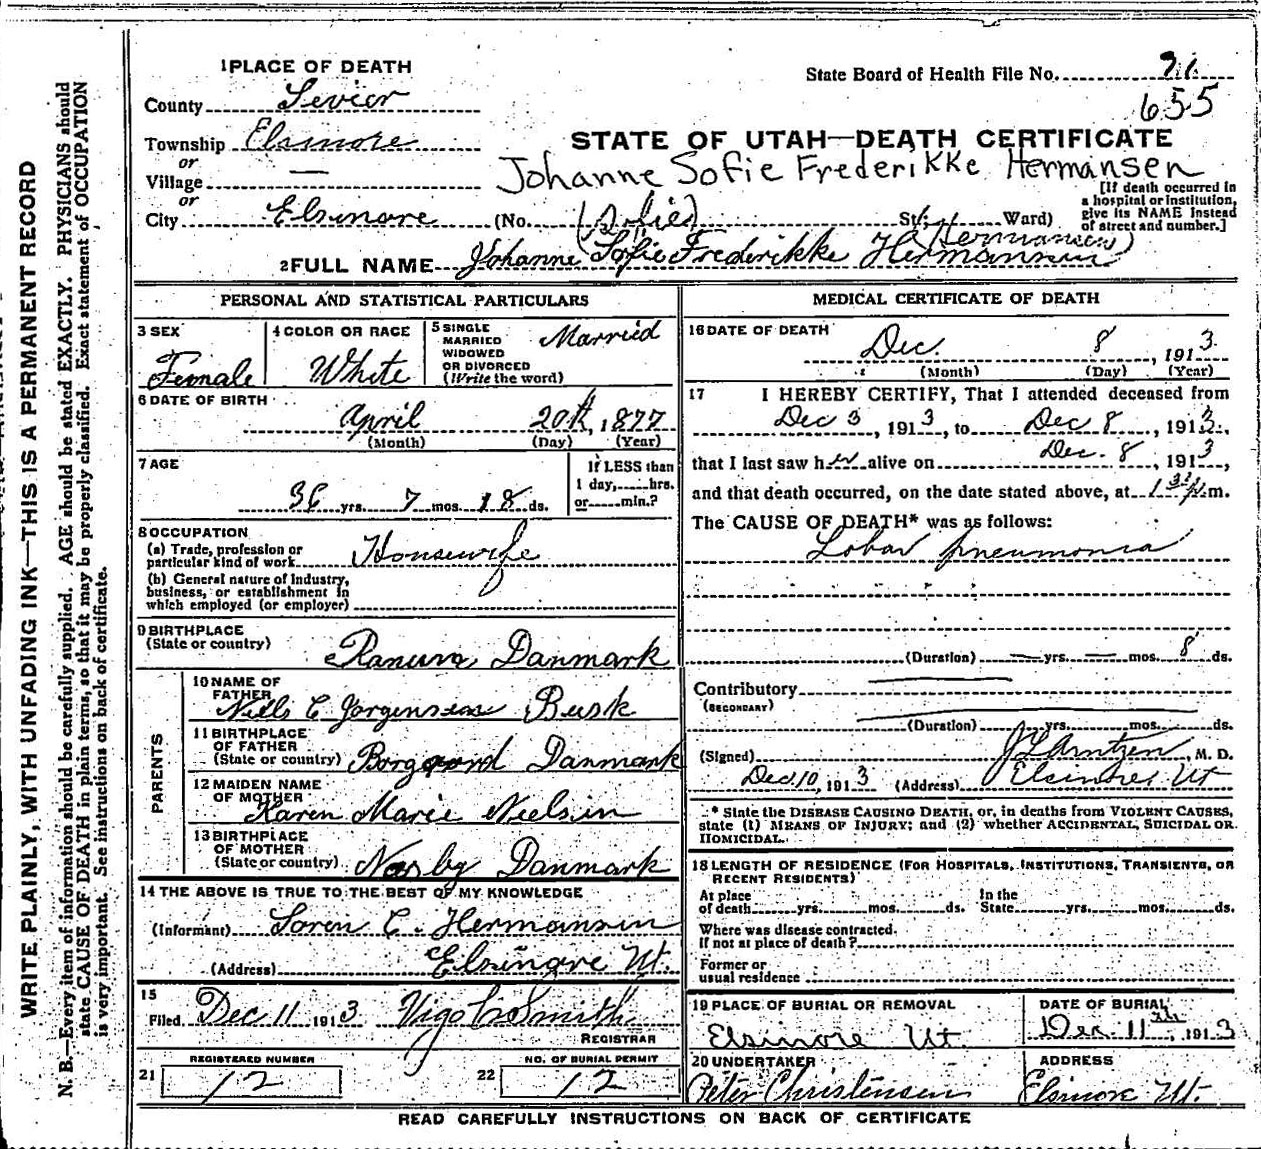 WRITE PLAINLY, WITH UNFADING INK—THIS IS A PERMANENT RECORD
N. B.—Every item of information should be carefully supplied. AGE should be stated EXACTLY. PHYSICIANS should
state CAUSE OF DEATH in plain terms, so that it may be properly classified. Exact statement of OCCUPATION
is very important. See instructions on back of certificate.
1 PLACE OF DEATH
County Sevier
Township Elsinore
or
Village —
or
City Elsinore (No. St. Ward)
State Board of Health File No. 71
655
STATE OF UTAH—DEATH CERTIFICATE
Johanne Sofie Frederikke Hermansen
[If death occurred in
a hospital or institution,
give its NAME instead
of street and number.]
(Hermansen)
2 FULL NAME Johanne Sofie Frederikke Hermannsen
PERSONAL AND STATISTICAL PARTICULARS
3 SEX
Female
4 COLOR OR RACE
White
5 SINGLE
MARRIED
WIDOWED
OR DIVORCED
(Write the word)
Married
6 DATE OF BIRTH
April 20th, 1877
(Month) (Day) (Year)
7 AGE
36 yrs. 7 mos. 18 ds.
If LESS than
1 day,......hrs.
or......min.?
8 OCCUPATION
(a) Trade, profession or
particular kind of work Housewife
(b) General nature of industry,
business, or establishment in
which employed (or employer)
9 BIRTHPLACE
(State or country)
Danmark
PARENTS
10 NAME OF
FATHER
Niels C Jorgensen Busk
11 BIRTHPLACE
OF FATHER
(State or country) Danmark
12 MAIDEN NAME
OF MOTHER
Karen Marie Nielsen
13 BIRTHPLACE
OF MOTHER
(State or country) Nasby Danmark
14 THE ABOVE IS TRUE TO THE BEST OF MY KNOWLEDGE
(Informant) Soren C. Hermansen
(Address) Elsinore Ut.
15
Filed Dec 11 1913 Vigo C Smith
REGISTRAR
REGISTERED NUMBER
21 12
NO. OF BURIAL PERMIT
22 12
MEDICAL CERTIFICATE OF DEATH
16 DATE OF DEATH
Dec. 8, 1913
(Month) (Day) (Year)
17 I HEREBY CERTIFY, That I attended deceased from
Dec 3, 1913, to Dec 8, 1913,
that I last saw her alive on Dec. 8, 1913,
and that death occurred, on the date stated above, at 1 30 p.m.
The CAUSE OF DEATH* was as follows:
Lobar pneumonia
(Duration) — yrs. — mos. 8 ds.
Contributory
(SECONDARY)
(Duration) yrs. mos. ds.
(Signed) J L Arntzen, M. D.
Dec. 10, 1913 (Address) Elsinore Ut
* State the DISEASE CAUSING DEATH, or, in deaths from VIOLENT CAUSES,
state (1) MEANS OF INJURY; and (2) whether ACCIDENTAL, SUICIDAL OR
HOMICIDAL.
18 LENGTH OF RESIDENCE (FOR HOSPITALS, INSTITUTIONS, TRANSIENTS, OR
RECENT RESIDENTS)
At place
of death yrs. mos. ds.
In the
State yrs. mos. ds.
Where was disease contracted.
If not at place of death?
Former or
usual residence
19 PLACE OF BURIAL OR REMOVAL
Elsinore Ut.
DATE OF BURIAL
Dec. 11th, 1913
20 UNDERTAKER
Peter Christensen
ADDRESS
Elsinore Ut.
READ CAREFULLY INSTRUCTIONS ON BACK OF CERTIFICATE